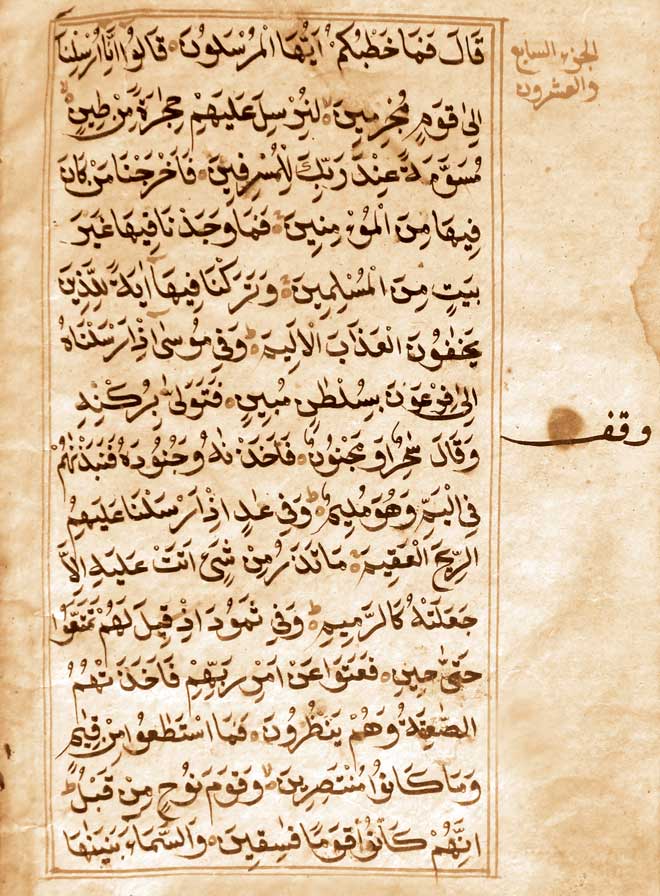 قَالَ فَمَا خَطْبُكُمْ أَيُّهَا الْمُرْسَلُونَ قَالُوا إِنَّا أُرْسِلْنَا
الجزء السابع
والعشرون
إِلَىٰ قَوْمٍ مُجْرِمِينَ لِنُرْسِلَ عَلَيْهِمْ حِجَارَةً مِنْ طِينٍ
مُسَوَّمَةً عِنْدَ رَبِّكَ لِلْمُسْرِفِينَ فَأَخْرَجْنَا مَنْ كَانَ
فِيهَا مِنَ الْمُؤْمِنِينَ فَمَا وَجَدْنَا فِيهَا غَيْرَ
بَيْتٍ مِنَ الْمُسْلِمِينَ وَتَرَكْنَا فِيهَا اٰيَةً لِلَّذِينَ
يَخَافُونَ الْعَذَابَ الْاَلِيمَ وَفِي مُوسٰى اِذْ اَرْسَلْنَاهُ
اِلٰى فِرْعَوْنَ بِسُلْطٰنٍ مُبِينٍ فَتَوَلّٰى بِرُكْنِهِ
وَقَالَ سٰحِرٌ اَوْ مَجْنُونٌ فَاَخَذْنٰهُ وَجُنُودَهُ فَنَبَذْنٰهُمْ
وقف
فِي الْيَمِّ وَهُوَ مُلِيمٌ وَفِي عَادٍ اِذْ اَرْسَلْنَا عَلَيْهِمُ
الرِّيحَ الْعَقِيمَ مَا تَذَرُ مِنْ شَيْءٍ اَتَتْ عَلَيْهِ اِلَّا
جَعَلَتْهُ كَالرَّمِيمِ وَفِي ثَمُودَ اِذْ قِيلَ لَهُمْ تَمَتَّعُوا
حَتّٰى حِينٍ فَعَتَوْا عَنْ اَمْرِ رَبِّهِمْ فَاَخَذَتْهُمُ
الصّٰعِقَةُ وَهُمْ يَنْظُرُونَ فَمَا اسْتَطٰعُوا مِنْ قِيَامٍ
وَمَا كَانُوا مُنْتَصِرِينَ وَقَوْمَ نُوحٍ مِنْ قَبْلُ
اِنَّهُمْ كَانُوا قَوْمًا فٰسِقِينَ وَالسَّمَاءَ بَنَيْنٰهَا